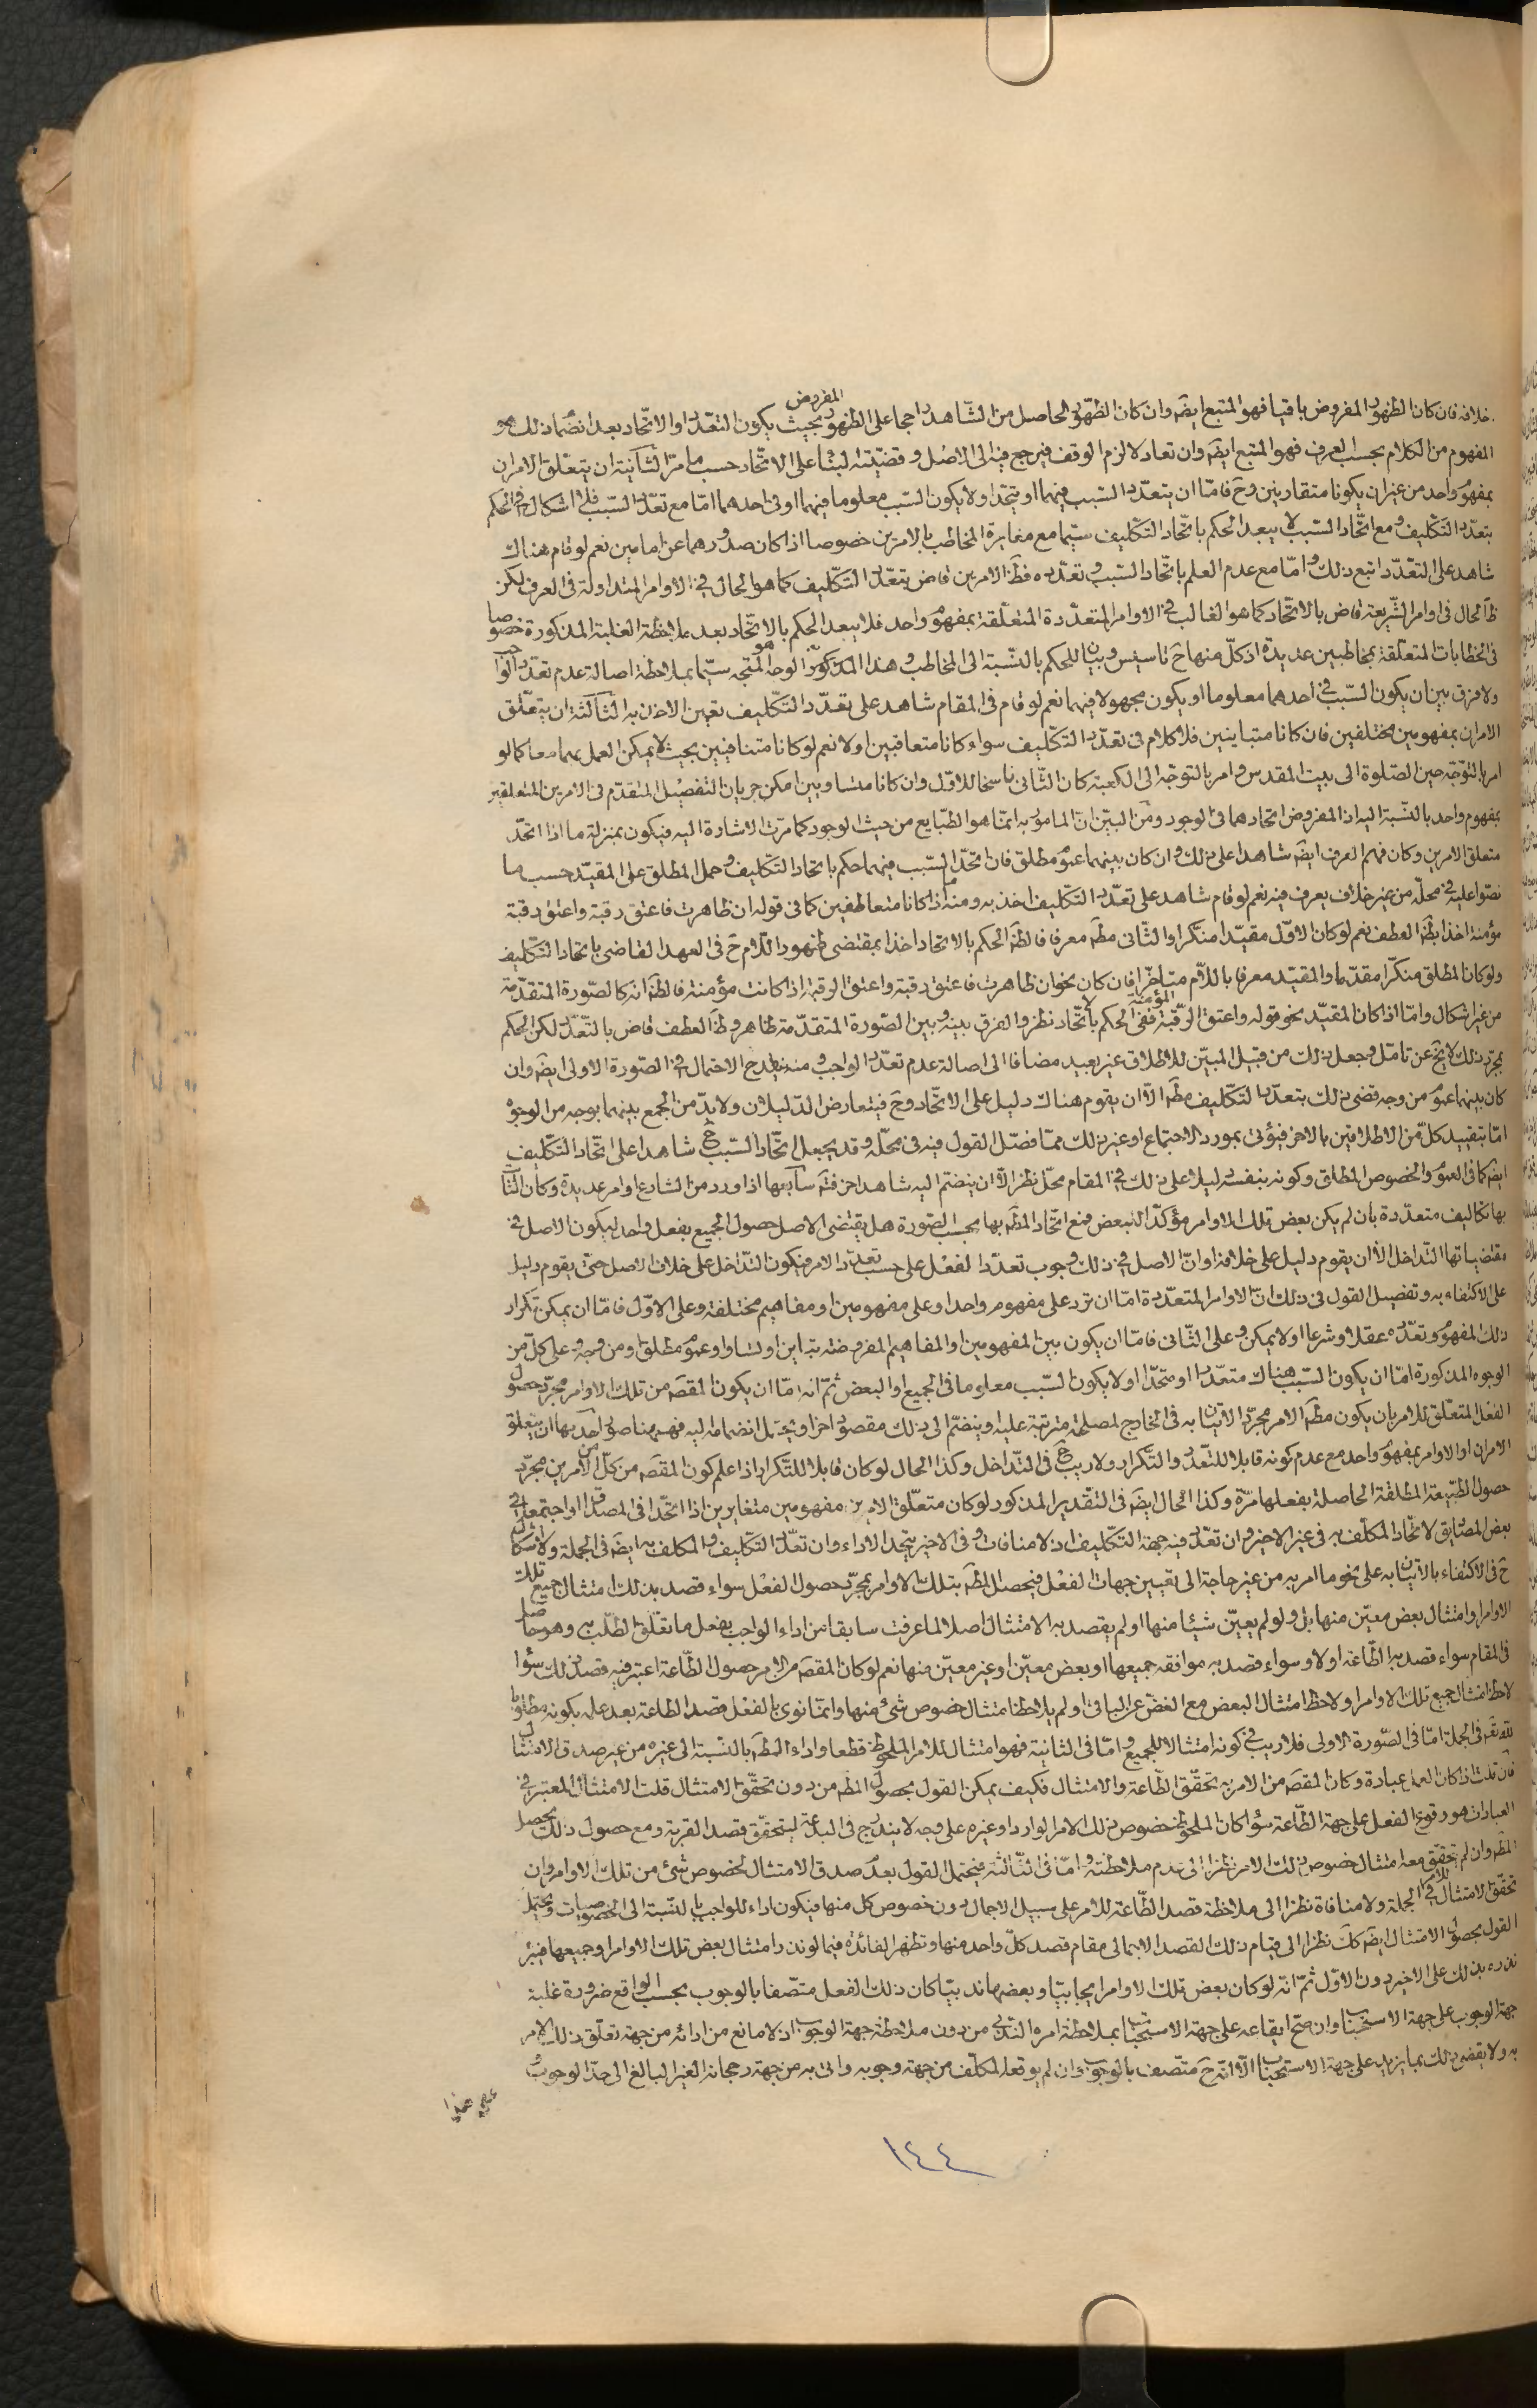 خلافه فان كان الظهور المفروض باقيا فهو المتبع ايضَ وان كان الظهور الحاصل من الشاهد راجحا على الظهور المفروض بحيث يكون التعدّد او الاتّحاد بعد انضمام ذلك هو
المفهوم من الكلام بحسب العرف فهو المتبع ايضَ وان تعادلا لزم الوقف فيرجع فيه الى الاصل وقضيّته البناء على الاتّحاد حسب ما مرّ الثانية ان يتعلّق الامران
بمفهوم واحد من غير ان يكونا متقارنين وحَ فامّا ان يتعدّد السّبب فيهما او يتّحد او لا يكون السّبب معلوما فيهما او في احدهما امّا مع تعدّد السّبب فلا اشكال في الحكم
بتعدّد التكليف ومع اتّحاد السّبب لا يبعد الحكم باتّحاد التكليف سيّما مع مغايرة المخاطب بالامرين خصوصا اذا كان صدورهما عن امامين نعم لو قام هناك
شاهد على التعدّد اتبع ذلك وامّا مع عدم العلم باتّحاد السّبب وتعدّده فظَ الامرين قاض بتعدّد التكليف كما هو الحال في الاوامر المتداولة في العرف لكن
ظَ الحال في اوامر الشّريعة قاض بالاتّحاد كما هو الغالب في الاوامر المتعدّدة المتعلّقة بمفهوم واحد فلا يبعد الحكم بالاتّحاد بعد ملاحظة الغلبة المذكورة خصوصا
في الخطابات المتعلّقة بمخاطبين عديدة اذ كلّ منها حَ تاسيس وبيان للحكم بالنّسبة الى المخاطب وهذا المذكور هو الوجه المتّجه سيّما بملاحظة اصالة عدم تعدّد الواجب
ولا فرق بين ان يكون السّبب في احدهما معلوما او يكون مجهولا فيهما نعم لو قام في المقام شاهد على تعدّد التكليف تعيّن الاخذ به الثالثة ان يتعلّق
الامران بمفهومين مختلفين فان كانا متباينين فلا كلام في تعدّد التكليف سواء كانا متعاقبين او لا نعم لو كانا متنافيين بحيث لا يمكن العمل بهما معا كما لو
امر بالتوجّه حين الصّلوة الى بيت المقدس وامر بالتوجّه الى الكعبة كان الثّاني ناسخا للاوّل وان كانا متساويين امكن جريان التفصيل المتقدّم في الامرين المتعلقين
بمفهوم واحد بالنّسبة اليه اذ المفروض اتحادهما في الوجود ومن البيّن انّ المامور به انّما هو الطّبايع من حيث الوجود كما مرّت الاشارة اليه فيكون بمنزلة ما اذا اتحد
متعلق الامرين وكان فهم العرف ايضَ شاهدا على ذلك وان كان بينهما عموم مطلق فان اتحدّ السّبب فيهما حكم باتحاد التكليف وحمل المطلق على المقيّد حسب ما
نصّوا عليه في محلّه من غير خلاف يعرف فيه نعم لو قام شاهد على تعدّد التكليف اخذ به ومنه ما اذا كانا متعاطفين كما في قوله ان ظاهرت فاعتق رقبة واعتق رقبة
مؤمنة اخذا بظَ العطف نعم لو كان الاوّل مقيّدا منكّرا والثّاني مطَ معرفا فالظَ الحكم بالاتحاد اخذا بمقتضى ظهور اللّام حَ في العهد القاضي باتحاد التكليف
ولو كان المطلق منكّرا مقدّما والمقيّد معرفا باللّام متاخّرا فان كان نحو ان ظاهرت فاعتق رقبة واعتق الرقبة اذا كانت مؤمنة فالظَ انه كالصّورة المتقدّمة
من غير اشكال وامّا اذا كان المقيّد نحو قوله واعتق الرّقبة المؤمنة ففي الحكم بالاتّحاد نظر والفرق بينه وبين الصّورة المتقدّمة ظاهر وظَ العطف قاض بالتّعدّد لكن الحكم
بمجرّد ذلك لا يخَ عن تامّل وجعل ذلك من قبيل المبيّن للاطلاق غير بعيد مضافا الى اصالة عدم تعدّد الواجب ومنه ينقدح الاحتمال في الصّورة الاولى ايضَ وان
كان بينهما عموم من وجه قضى ذلك بتعدّد التكليف مطَ الّا ان يقوم هناك دليل على الاتّحاد وحَ فيتعارض الدّليلان ولا بدّ من الجمع بينهما بوجه من الوجوه
امّا بتقييد كلّ من الاطلاقين بالاخر فيؤتى بمورد الاجتماع او غير ذلك ممّا فصّل القول فيه في محلّه وقد يجعل اتّحاد السّبب حَ شاهدا على اتّحاد التكليف
ايضَ كما في العموم والخصوص المطلق وكونه بنفسه دليلا على ذلك في المقام محلّ نظر الّا ان ينضّم اليه شاهد اخر فتَم سابعها اذا ورد من الشارع اوامر عديدة وكان الثابت
بها تكاليف متعدّدة بان لم يكن بعض تلك الاوامر مؤكّدا للبعض فمع اتّحاد المطَ بها بحسب الصّورة هل يقتضى الاصل حصول الجميع بفعل واحد ليكون الاصل في
مقتضياتها التّداخل الّا ان يقوم دليل على خلافه او انّ الاصل في ذلك وجوب تعدّد الفعل على حسب تعدّد الامر فيكون التّداخل على خلاف الاصل حتى يقوم دليل
على الاكتفاء به وتفصيل القول في ذلك انّ الاوامر المتعدّدة امّا ان ترد على مفهوم واحد او على مفهومين او مفاهيم مختلفة وعلى الاوّل فامّا ان يمكن تكرار
ذلك المفهوم وتعدّده عقلا او شرعا او لا يمكن وعلى الثّاني فامّا ان يكون بين المفهومين او المفاهيم المفروضة تباين او تساو او عموم مطلق او من وجه وعلى كلّ من
الوجوه المذكورة امّا ان يكون السّبب هناك متعدّدا او متحدّا او لا يكون السّبب معلوما في الجميع او البعض ثمّ انه امّا ان يكون المقصَ من تلك الاوامر مجرّد حصول
الفعل المتعلّق للامر بان يكون مطَ الامر مجرّد الاتيان به في الخارج لمصلحة مترتبة عليه او ينضّم الى ذلك مقصود اخر او يحتمل انضمامه اليه فههنا صور احدها ان يتعلّق
الامران او الاوامر بمفهوم واحد مع عدم كونه قابلا للتعدّد والتكرار ولا ريب حَ في التّداخل وكذا الحال لو كان قابلا للتكرار اذا علم كون المقصَ من كلّ من الامرين مجرّد
حصول الطّبيعة المطلقة الحاصلة بفعلها مرّة وكذا الحال ايضَ في التقدير المذكور لو كان متعلّق الامرين مفهومين متغايرين اذا اتّحدا في المصداق او اجتمعا في
بعض المصاديق لاتّحاد المكلّف به في غير الاخير وان تعدّد فيه جهة التكليف اذ لا منافات وفي الاخير يتحد الاداء وان تعدّد التكليف والمكلف به ايضَ في الجملة ولا اشكال
حَ في الاكتفاء بالاتيان به على نحو ما امر به من غير حاجة الى تعيين جهات الفعل فيحصل المطَ بتلك الاوامر بمجرّد حصول الفعل سواء قصد بذلك امتثال جميع تلك
الاوامر او امتثال بعض معيّن منها بل ولو لم يعيّن شيئا منها او لم يقصد به الامتثال اصلا لما عرفت سابقا من اداء الواجب بفعل ما تعلّق الطلب به وهو حاصل
في المقام سواء قصد به الطّاعة او لا وسواء قصد به موافقه جميعها او بعض معيّن او غير معيّن منها نعم لو كان المقصَ من الامر حصول الطّاعة اعتبر فيه قصد ذلك سواء
لاحظ امتثال جميع تلك الاوامر او لاحظ امتثال البعض مع الغضّ عن الباقي او لم يلاحظ امتثال خصوص شيء منها وانّما نوى بالفعل قصد الطاعة بعد علمه بكونه مطلوبا
للّه تعَ في الجملة امّا في الصّورة الاولى فلا ريب في كونه امتثالا للجميع وامّا في الثانية فهو امتثال للامر الملحوظ قطعا واداء المطَ بالنّسبة الى غيره من غير صدق الامتثال
فان قلت اذا كان العمل عبادة وكان المقصَ من الامر به تحقّق الطّاعة والامتثال فكيف يمكن القول بحصول المطَ من دون تحقّق الامتثال قلت الامتثال المعتبر في
العبادات هو وقوع الفعل على جهة الطّاعة سواء كان الملحوظ خصوص ذلك الامر الوارد او غيره على وجه لا يندرج في البدعة ليتحقّق قصد القربة ومع حصول ذلك يحصل
المطَ وان لم يتحقّق معه امتثال خصوص ذلك الامر نظرا الى عدم ملاحظته وامّا في الثّالثة فيحتمل القول بعدم صدق الامتثال لخصوص شيء من تلك الاوامر وان
تحقق الامتثال للامر في الجملة ولا منافاة نظرا الى ملاحظة قصد الطّاعة للامر على سبيل الاجمال دون خصوص كل منها فيكون اداء للواجب بالنّسبة الى الخصوصيات ويحتمل
القول بحصول الامتثال ايضَ كَكَ نظرا الى قيام ذلك القصد الاجمالي مقام قصد كلّ واحد منها وتظهر الفائدة فيما لو نذر امتثال بعض تلك الاوامر او جميعها فيبرّ
نذره بذلك على الاخير دون الاوّل ثمّ انّه لو كان بعض تلك الاوامر ايجابيّا وبعضها ندبيّا كان ذلك الفعل متصفا بالوجوب بحسب الواقع ضرورة غلبة
جهة الوجوب على جهة الاستحباب وان صحّ ايقاعه على جهة الاستحباب بملاحظة امره الندبي من دون ملاحظة جهة الوجوب اذ لا مانع من ادائه من جهة تعلّق ذلك الامر
به ولا يقضي ذلك بما يزيد على جهة الاستحباب الّا انّه حَ متّصف بالوجوب وان لم يوقعه المكلّف من جهة وجوبه واتى به من جهة رجحانه الغير البالغ الى حدّ الوجوب
١٤٤